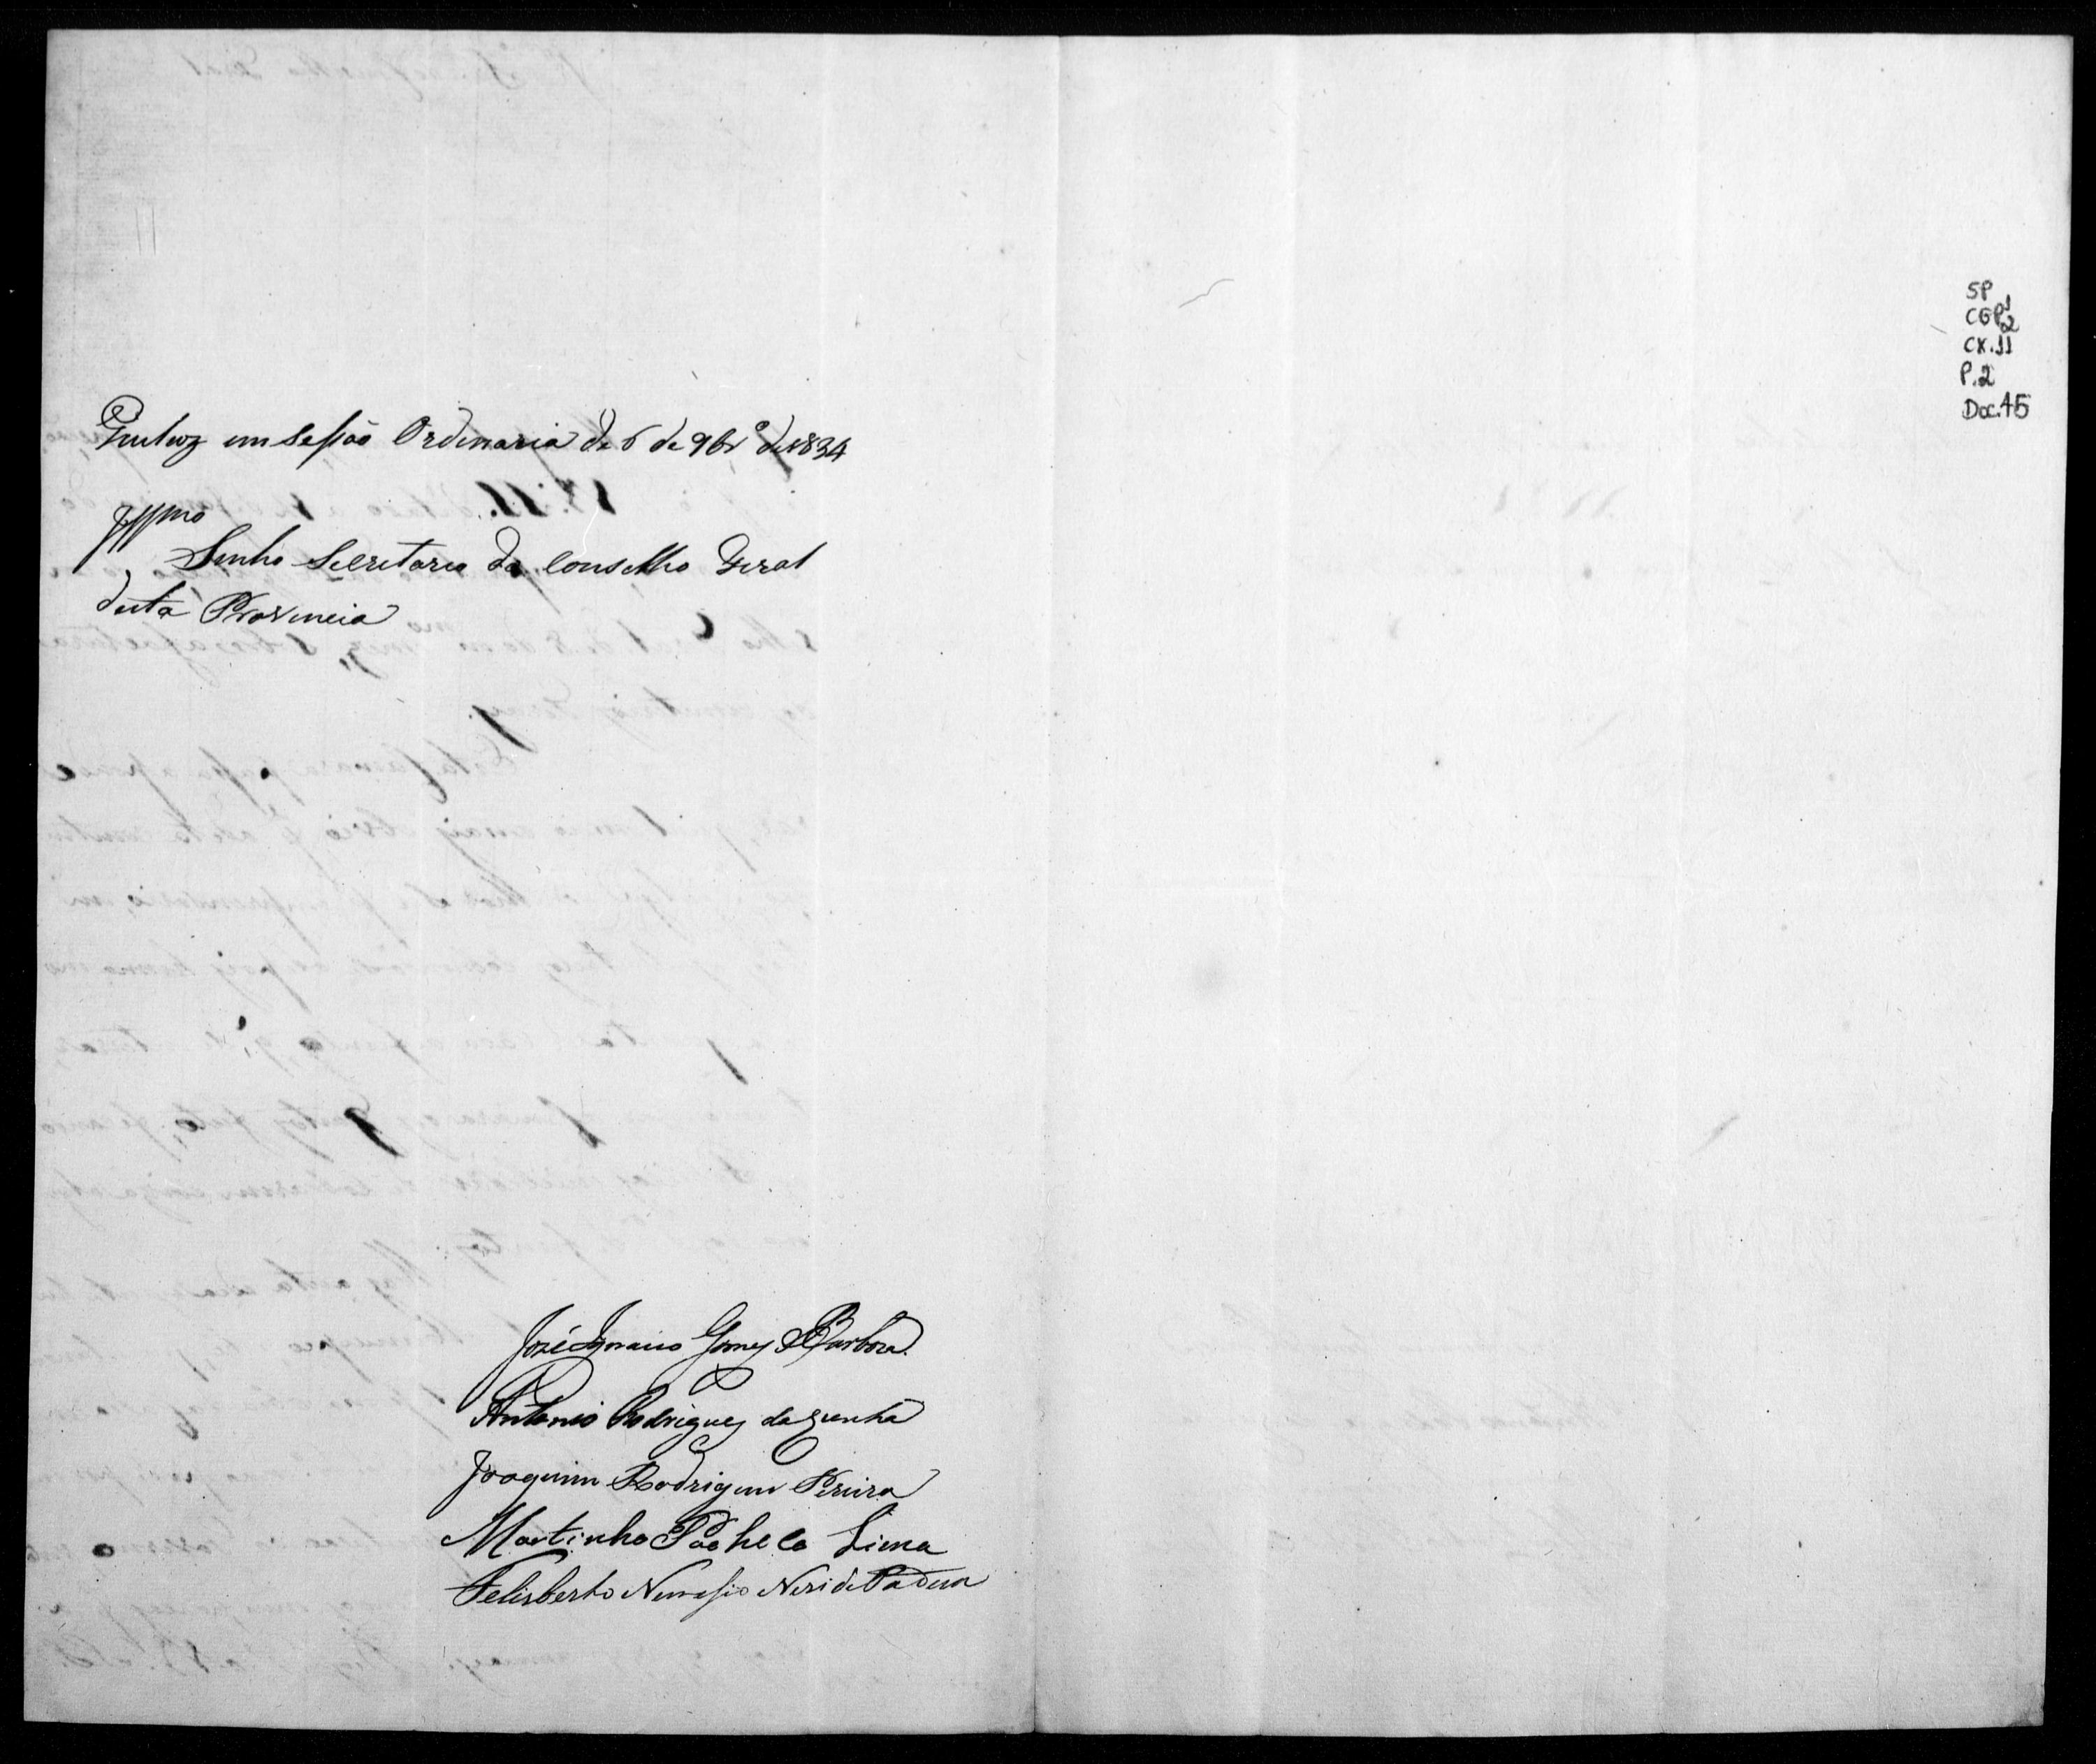 Queluz em Sessão Ordinaria de 6 de 9br.º de 1834
Illmo
Senhor Secretario do Conselho Geral
desta Provincia
José Ignacio Gomes Barboza
Antonio Rodrigues da Cunha
Joaquim Rodrigues Pereira
Martinho Pacheco Lima
Felisberto Nemesio Neri de Padua
SP
CGP1
2
CX.11
P.2
Doc.45